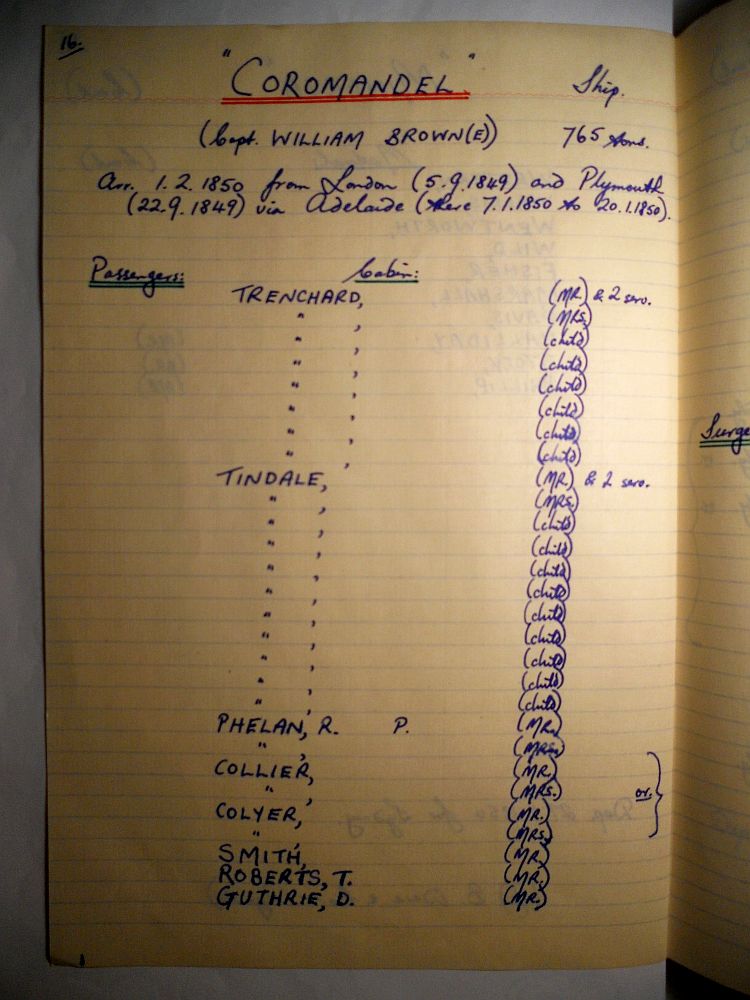 16.
"COROMANDEL" Ship.
(Capt. WILLIAM BROWN(E)) 765 tons.
Arr. 1.2.1850 from London (5.9.1849) and Plymouth
(22.9.1849) via Adelaide (there 7.1.1850 to 20.1.1850).
Passengers: Cabin:
TRENCHARD, (MR.) & 2 serv.
" , (MRS.)
" , (child)
" , (child)
" , (child)
" , (child)
" , (child)
" , (child)
TINDALE, (MR.) & 2 serv.
" , (MRS.)
" , (child)
" , (child)
" , (child)
" , (child)
" , (child)
" , (child)
" , (child)
" , (child)
" , (child)
PHELAN, R. P. (MR.)
" , (MRS.)
COLLIER, (MR.)
" , (MRS.) or
COLYER, (MR.)
" , (MRS.)
SMITH, (MR.)
ROBERTS, T. (MR.)
GUTHRIE, D. (MR.)